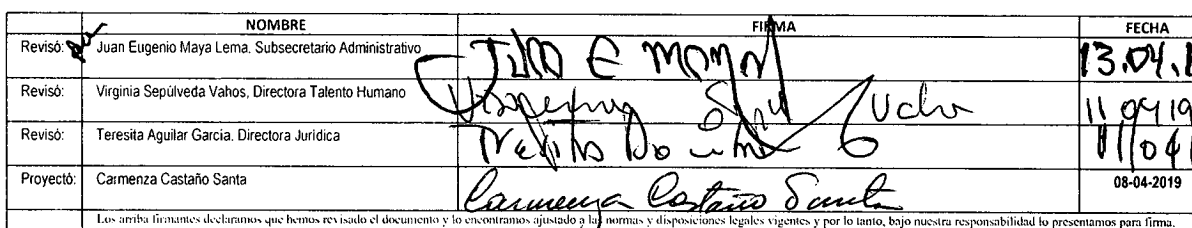 NOMBRE FIRMA FECHA
Revisó: Juan Eugenio Maya Lema. Subsecretario Administrativo 13.04.1
Revisó: Virginia Sepúlveda Vahos, Directora Talento Humano 110419
Revisó: Teresita Aguilar García. Directora Jurídica 11041
Proyectó: Carmenza Castaño Santa Carmenza Castaño Santa 08-04-2019
Los arriba firmantes declaramos que hemos revisado el documento y lo encontramos ajustado a las normas y disposiciones legales vigentes y por lo tanto, bajo nuestra responsabilidad lo presentamos para firma.